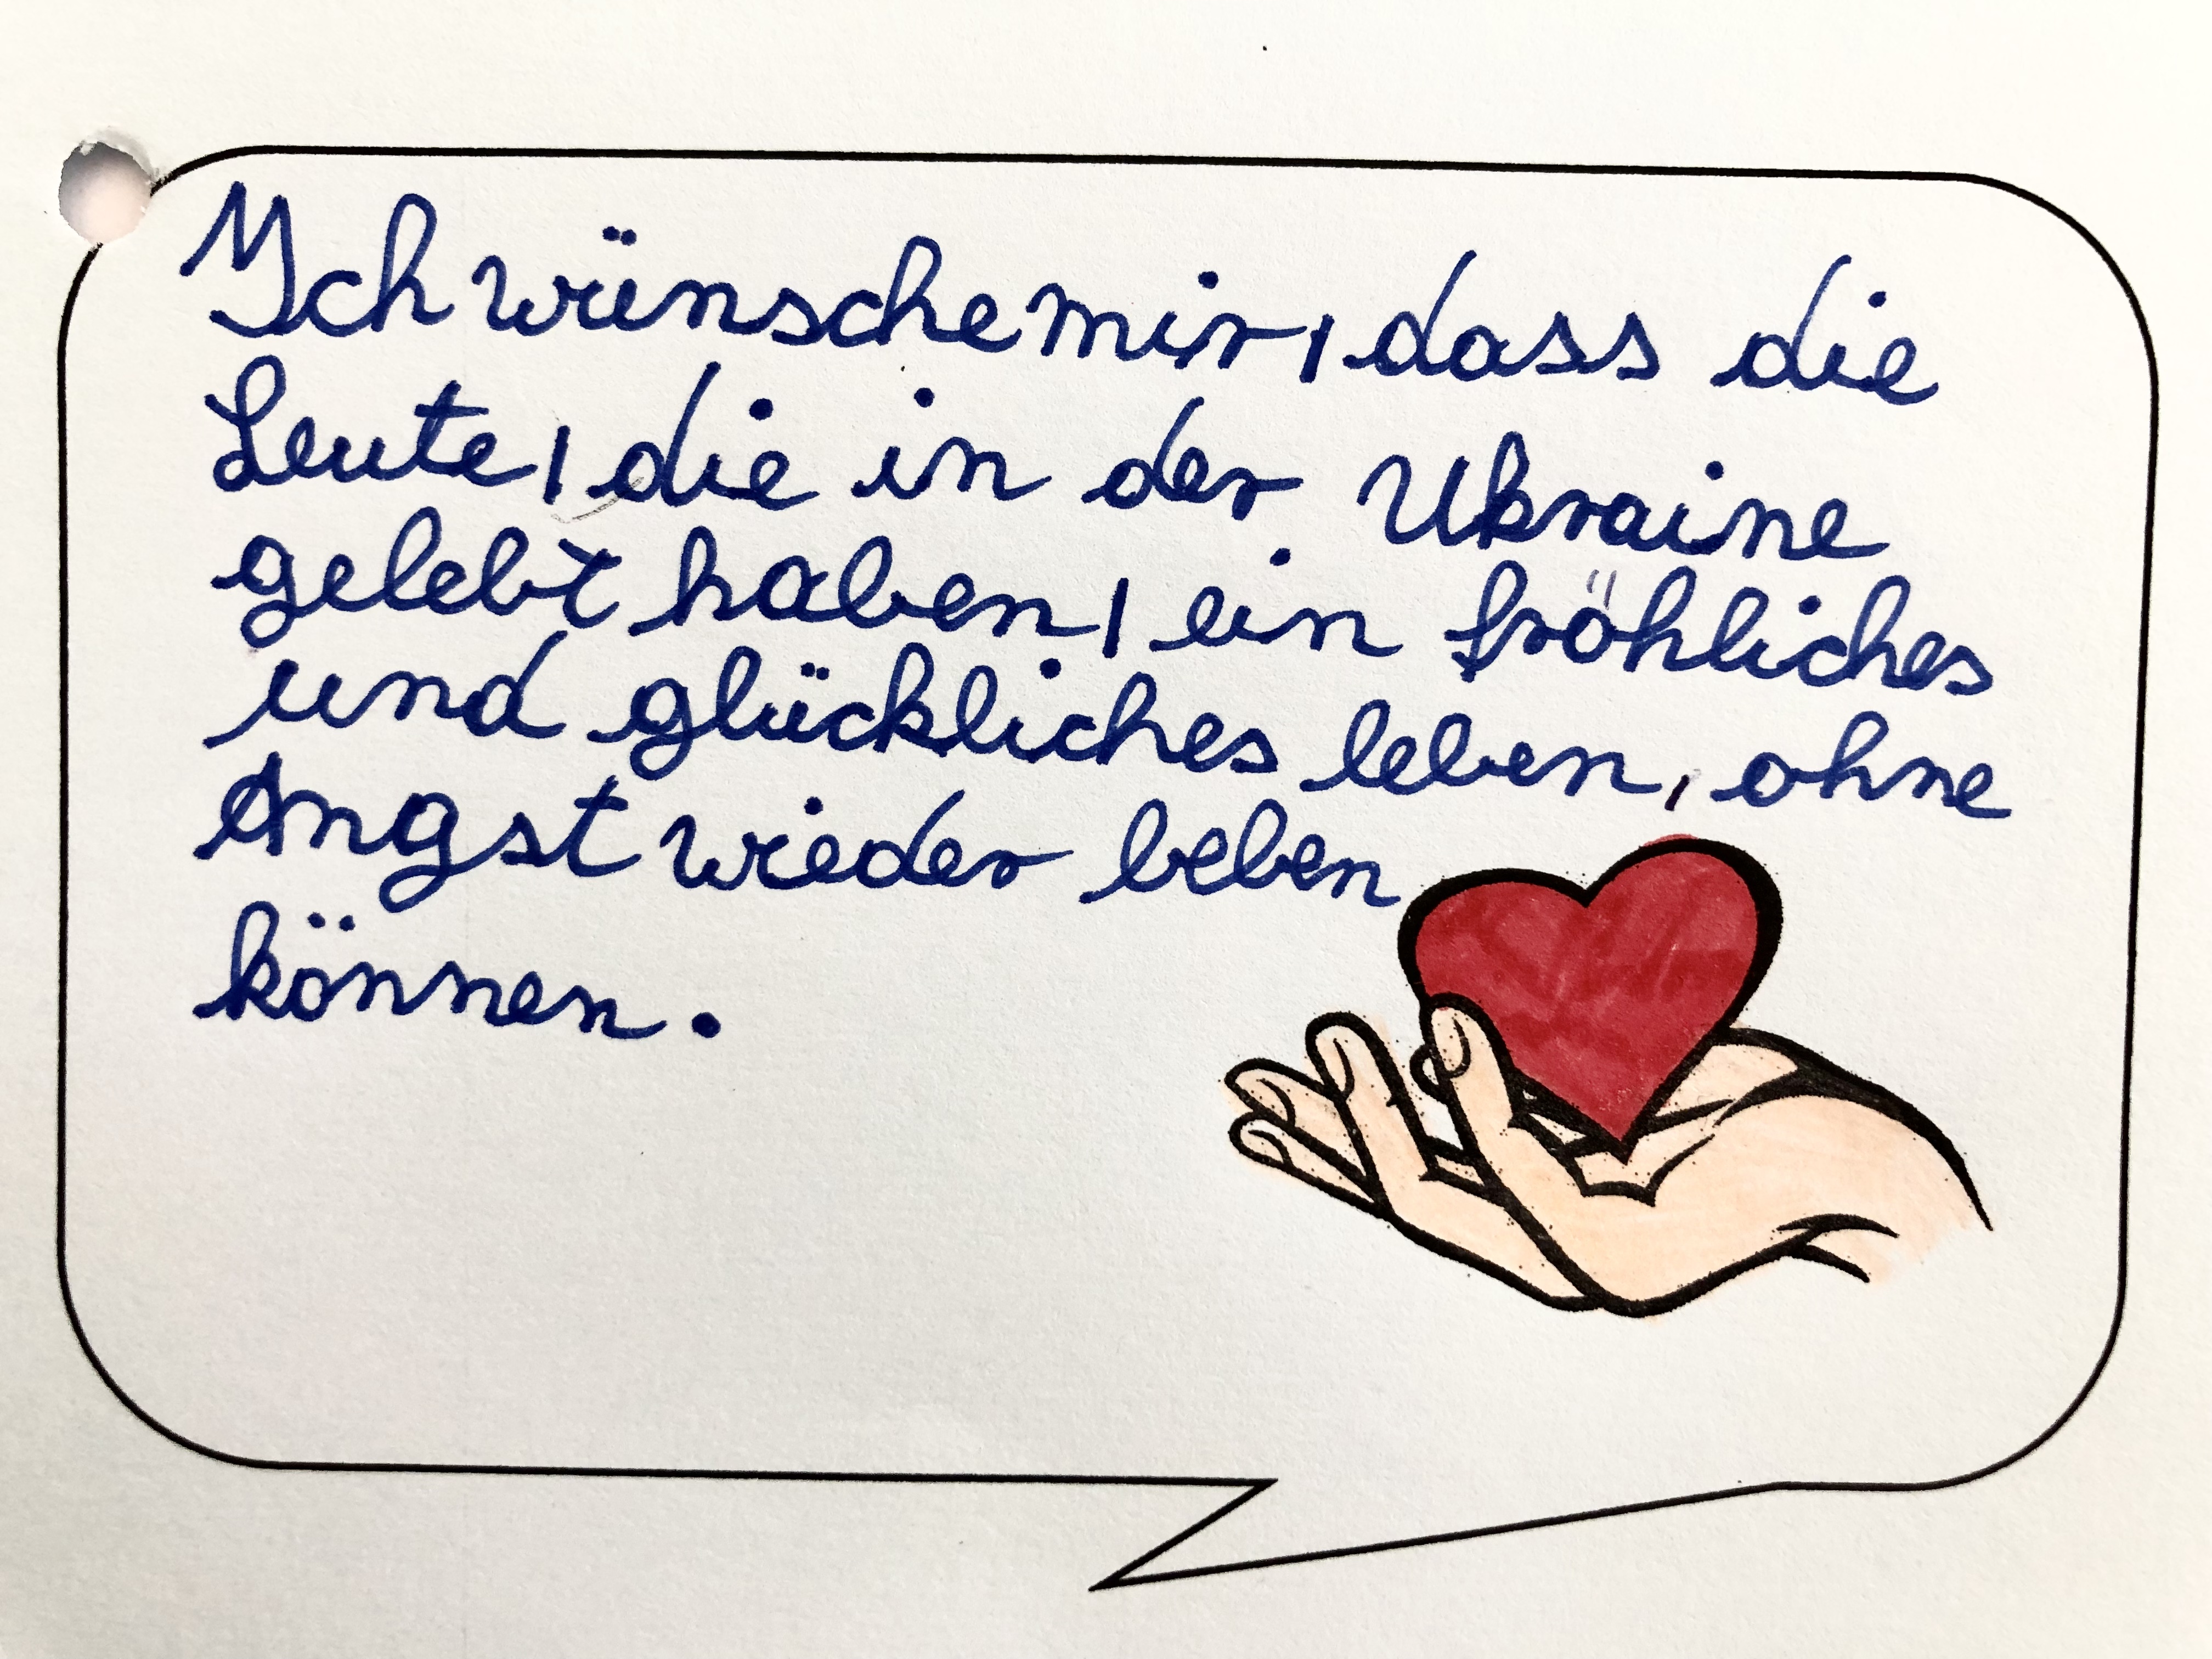 Ich wünsche mir, dass die
Leute, die in der Ukraine
gelebt haben, ein fröhliches
und glückliches leben, ohne
Angst wieder beben
können.